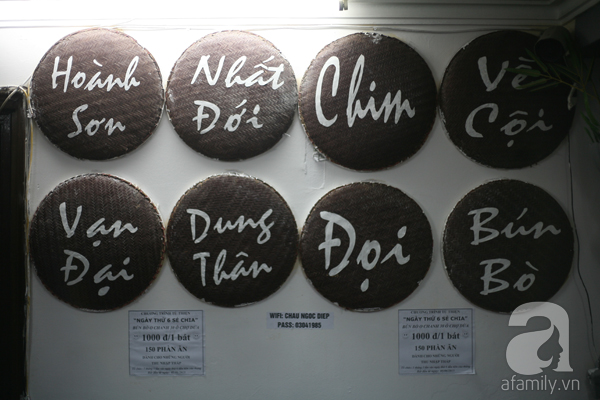 Hoành
Sơn
Nhất
Đới
Chim
Về
Cội
Vạn
Đại
Dung
Thân
Đọi
Bún
Bò
CHƯƠNG TRÌNH TỪ THIỆN
"NGÀY THỨ 6 SẺ CHIA"
1000 đ/1 bát
150 PHẦN ĂN
WIFI: CHAU NGOC DIEP
PASS: 03041985
CHƯƠNG TRÌNH TỪ THIỆN
"NGÀY THỨ 6 SẺ CHIA"
1000 đ/1 bát
150 PHẦN ĂN
a
afamily.vn